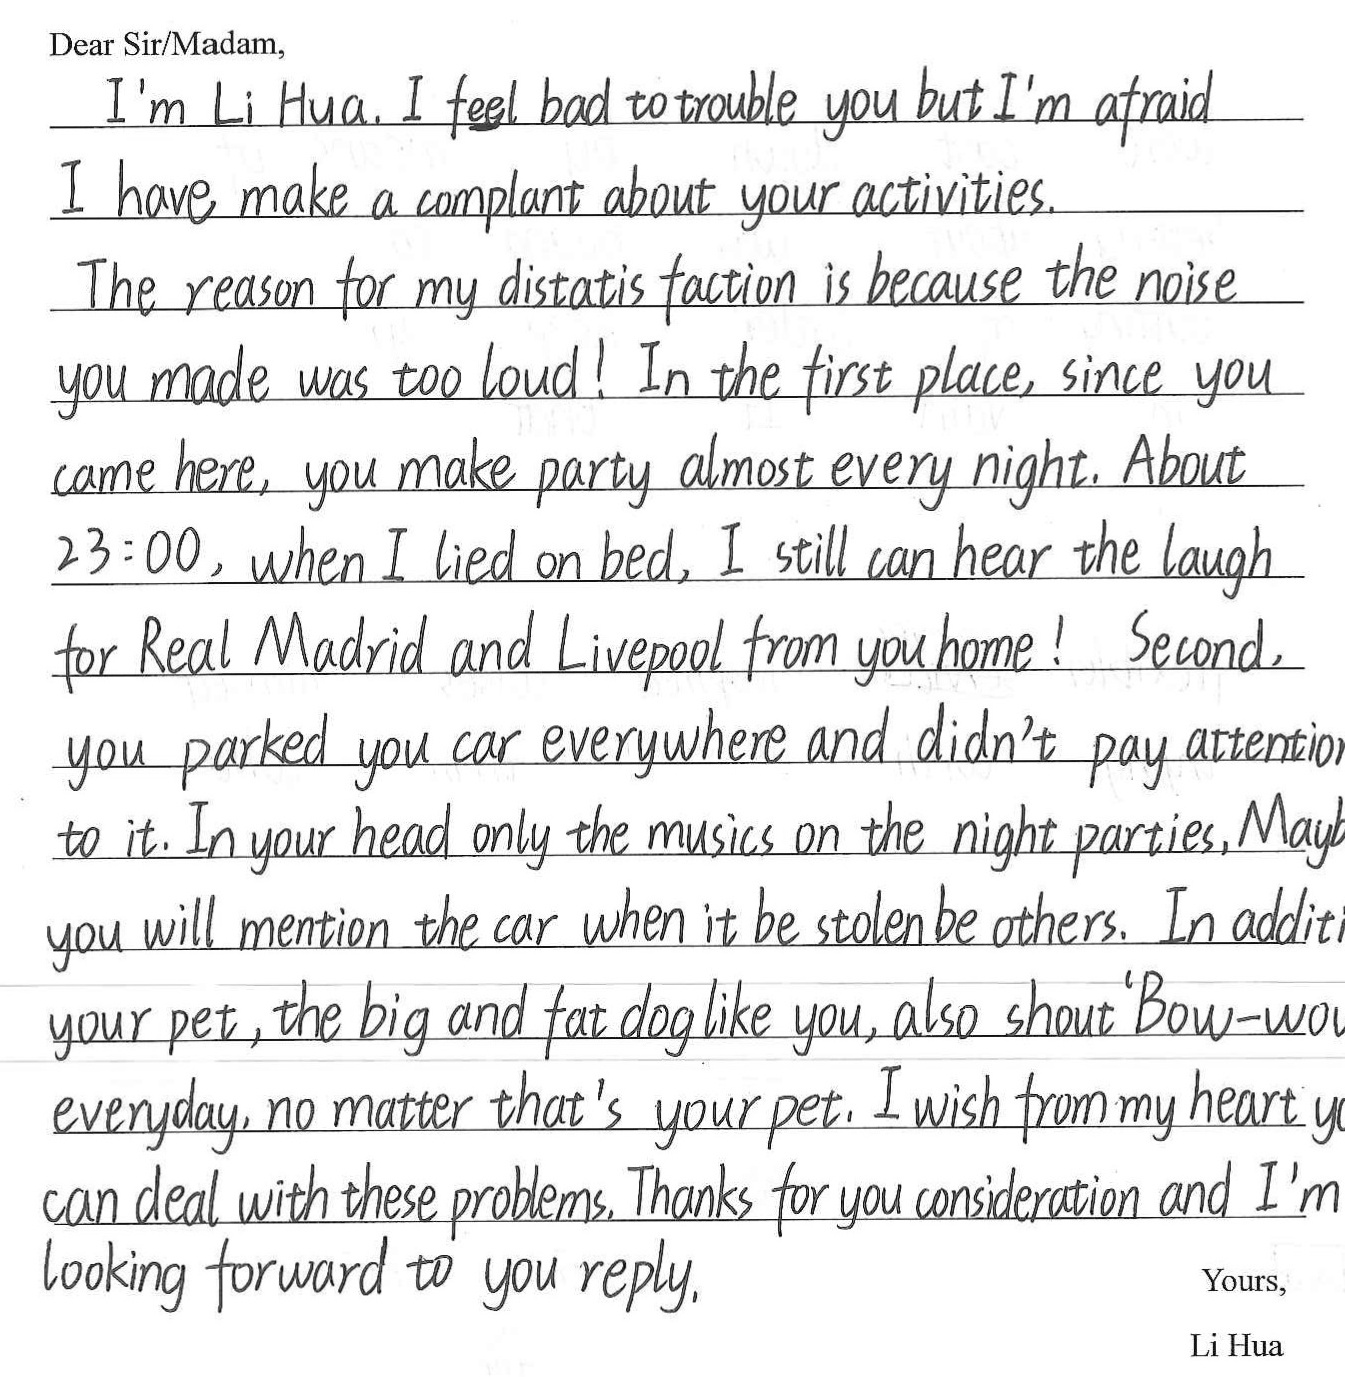 Dear Sir/Madam,
I'm Li Hua. I feel bad to trouble you but I'm afraid
I have make a complant about your activities.
The reason for my distatis faction is because the noise
you made was too loud! In the first place, since you
came here, you make party almost every night. About
23:00, when I lied on bed, I still can hear the laugh
for Real Madrid and Livepool from you home! Second,
you parked you car everywhere and didn't pay attention
to it. In your head only the musics on the night parties, Mayb
you will mention the car when it be stolen be others. In additi
your pet, the big and fat dog like you, also shout 'Bow-wow
everyday, no matter that's your pet. I wish from my heart yo
can deal with these problems. Thanks for you consideration and I'm
looking forward to you reply.
Yours,
Li Hua